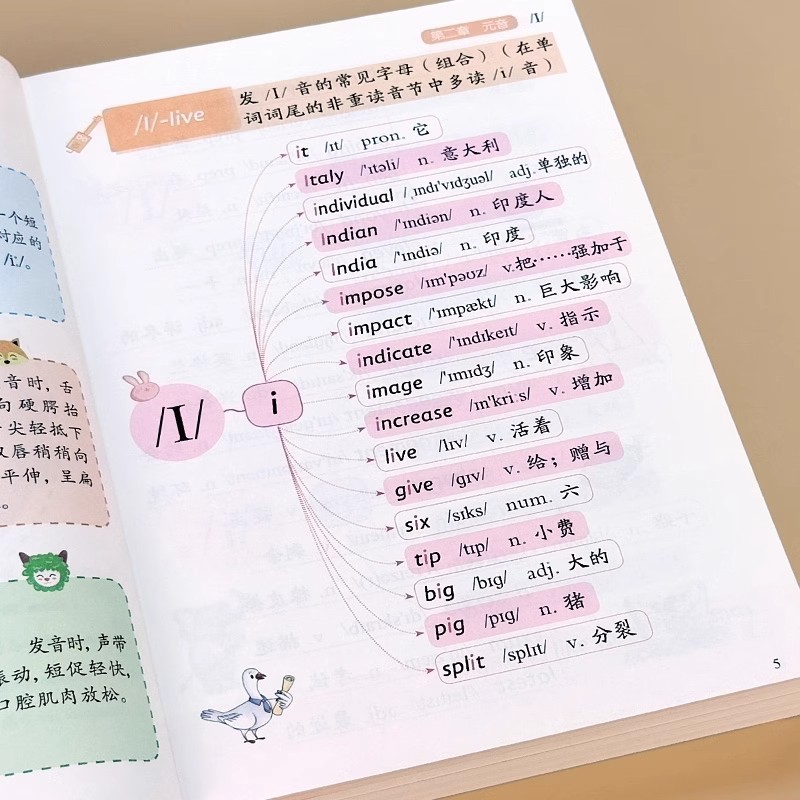 第二章 元音 /I/
/I/-live
发 /I/ 音的常见字母（组合）（在单
词词尾的非重读音节中多读 /i/ 音）
it /ɪt/ pron. 它
Italy /'ɪtəli/ n. 意大利
individual /ˌɪndɪ'vɪdʒuəl/ adj.单独的
Indian /'ɪndiən/ n. 印度人
India /'ɪndiə/ n. 印度
impose /ɪm'pəʊz/ v.把……强加于
impact /'ɪmpækt/ n. 巨大影响
indicate /'ɪndɪkeɪt/ v. 指示
image /'ɪmɪdʒ/ n. 印象
increase /ɪn'kriːs/ v. 增加
live /lɪv/ v. 活着
give /ɡɪv/ v. 给；赠与
six /sɪks/ num. 六
tip /tɪp/ n. 小费
big /bɪɡ/ adj. 大的
pig /pɪɡ/ n. 猪
split /splɪt/ v. 分裂
/I/
i
一个短
对应的
/iː/。
音时，舌
向硬腭抬
尖轻抵下
双唇稍稍向
平伸，呈扁
发音时，声带
振动，短促轻快，
口腔肌肉放松。
5